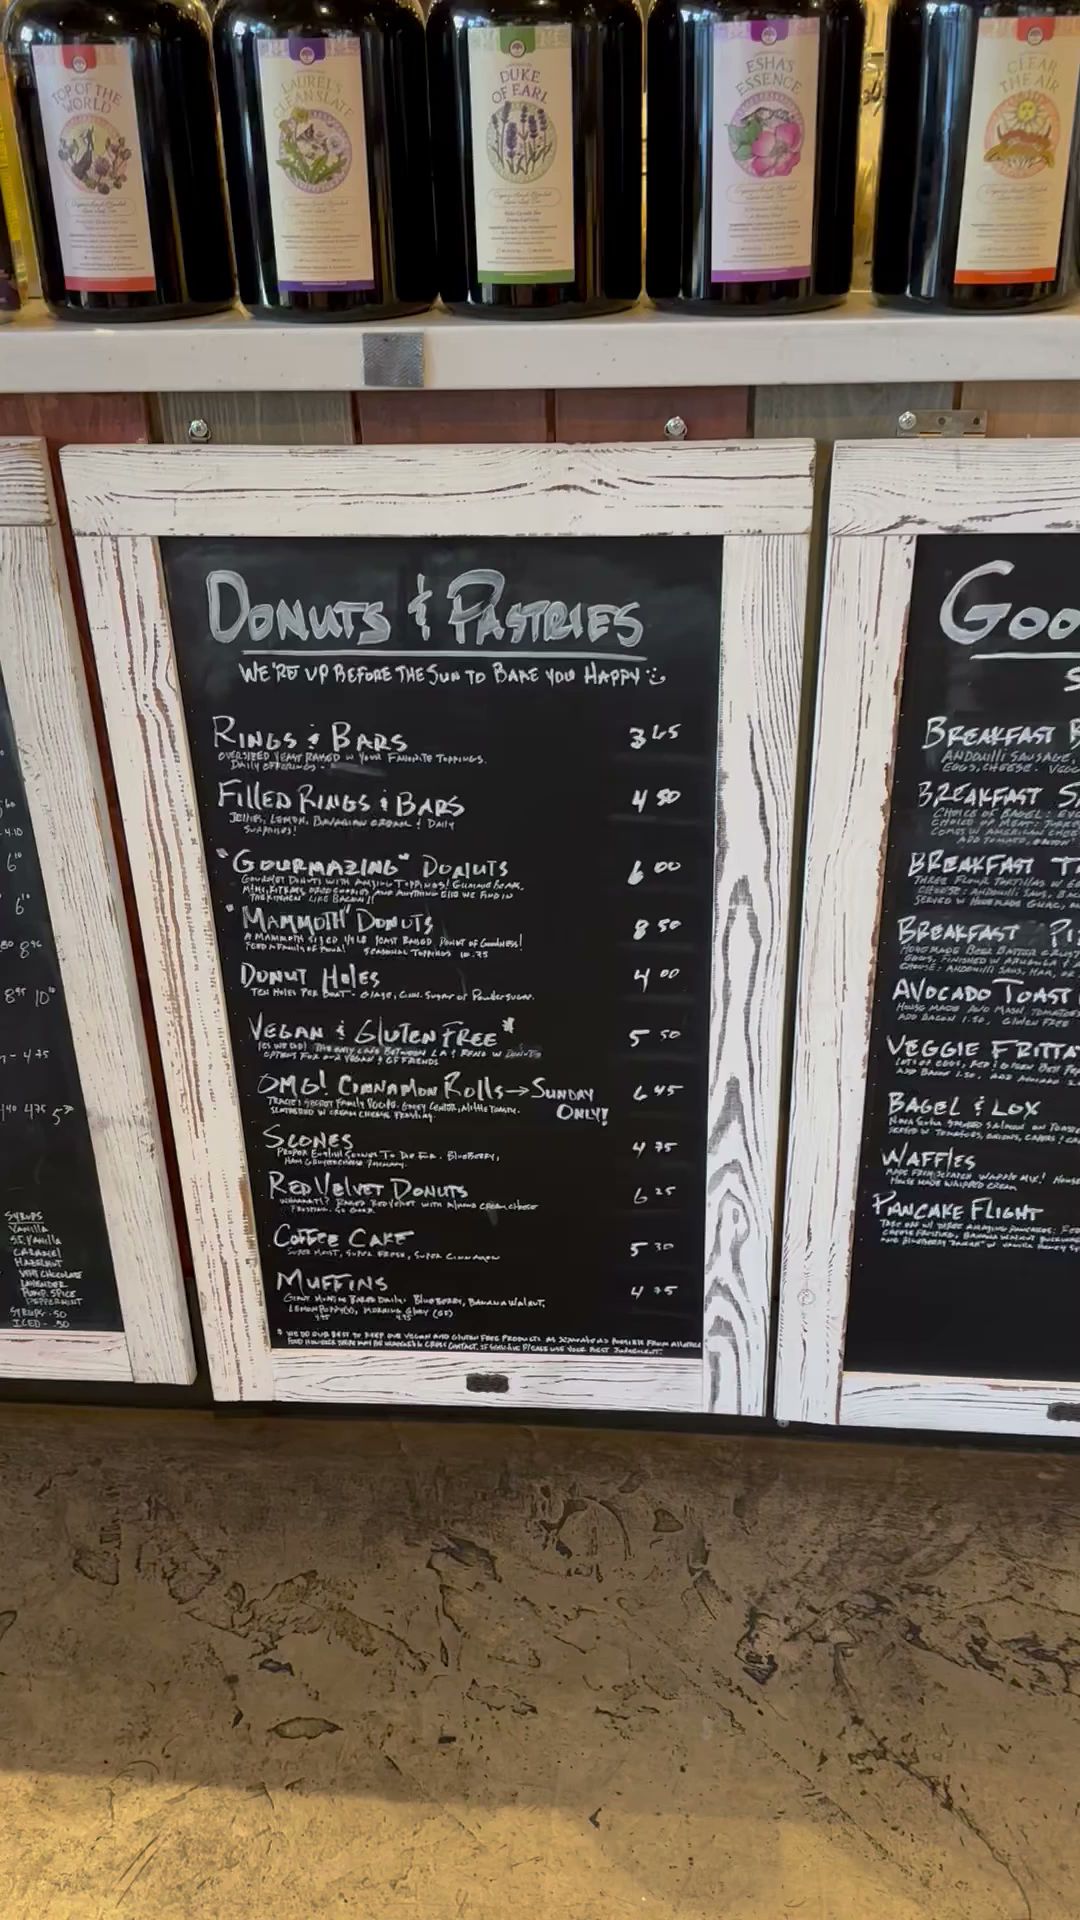 TOP OF THE
WORLD
LAUREL'S
CLEAN SLATE
DUKE
OF EARL
ESHA'S
ESSENCE
CLEAR
THE AIR
DONUTS & PASTRIES
WE'RE UP BEFORE THE SUN TO BAKE YOU HAPPY
RINGS & BARS 3 65
OVERSIZED YEAST RAISED W YOUR FAVORITE TOPPINGS.
DAILY OFFERINGS -
FILLED RINGS & BARS 4 50
JELLIES, LEMON, BAVARIAN CREAM & DAILY
SURPRISES!
"GOURMAZING" DONUTS 6 00
GOURMET DONUTS WITH AMAZING TOPPINGS! GUMMIE BEARS,
AND ANYTHING ELSE WE FIND IN
THE KITCHEN LIKE BACON!!
"MAMMOTH" DONUTS 8 50
A MAMMOTH SIZED 1/2 LB YEAST RAISED DONUT OF GOODNESS!
FEED A FAMILY OF FOUR! SEASONAL TOPPINGS 10.75
DONUT HOLES 4 00
TEN HOLES PER BOAT - GLAZE, CINN. SUGAR OR POWDER SUGAR.
VEGAN & GLUTEN FREE* 5 50
YES WE DO! THE ONLY CAFE BETWEEN LA & RENO W DONUTS
OPTIONS FOR OUR VEGAN & GF FRIENDS
OMG! CINNAMON ROLLS → SUNDAY 6 45
ONLY!
TRACIE'S SECRET FAMILY RECIPE. GOOEY CENTER, A LITTLE TOASTY.
SLATHERED W CREAM CHEESE FROSTING.
SCONES 4 75
PROPER ENGLISH SCONES TO DIE FOR. BLUEBERRY,
HAM GRUYERE CHEESE ROSEMARY.
RED VELVET DONUTS 6 25
WHAAAAT!? BAKED RED VELVET WITH ALMOND CREAM CHEESE
FROSTING. SO GOOD.
COFFEE CAKE 5 30
SUPER MOIST, SUPER FRESH, SUPER CINNAMON
MUFFINS 4 75
GIANT MUFFINS BAKED DAILY: BLUEBERRY, BANANA WALNUT,
LEMON POPPY, MORNING GLORY (GF)
* WE DO OUR BEST TO KEEP OUR VEGAN AND GLUTEN FREE PRODUCTS AS SEPARATED AS POSSIBLE FROM ALLERGEN
PLEASE USE YOUR BEST JUDGMENT.
GOO
S
BREAKFAST B
ANDOUILLI SAUSAGE,
EGGS, CHEESE. VEGG
BREAKFAST SA
CHOICE OF BAGEL: EVE
CHOICE OF MEAT: TURKEY
COMES W AMERICAN CHEE
ADD TOMATO, ONION
BREAKFAST T
THREE FLOUR TORTILLAS W EG
CHEESE. ANDOUILLI SAUS, BAC
SERVED W HOMEMADE GUAC, A
BREAKFAST PI
HOMEMADE BEER BATTER CRUST
EGGS, FINISHED W ARUGULA &
CHOOSE: ANDOUILLI SAUS, HAM, OR
AVOCADO TOAST
HOUSE MADE AND MASH, TOMATOES
ADD BACON 1.50, GLUTEN FREE
VEGGIE FRITTA
LOTS OF EGGS, RED & GREEN BELL PEP
ADD BACON 1.50, ADD AVOCADO
BAGEL & LOX
NOVA SCOTIA SMOKED SALMON ON TOASTE
SERVED W TOMATOES, ONIONS, CAPERS & CR
WAFFLES
MADE FROM SCRATCH WAFFLE MIX! HOUSE
HOUSE MADE WHIPPED CREAM
PANCAKE FLIGHT
TAKE OFF W/ THREE AMAZING PANCAKES:
SYRUPS
VANILLA
S.F. VANILLA
CARAMEL
HAZELNUT
WHT CHOCOLATE
LAVENDER
PUMP. SPICE
PEPPERMINT
SYRUPS .50
ICED - .50